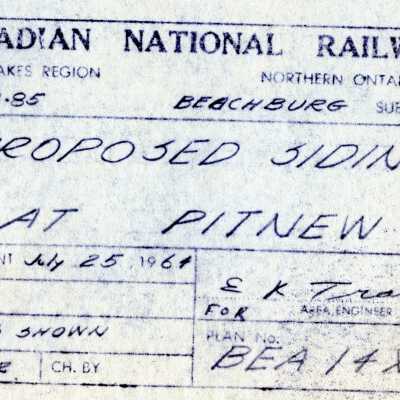 ADIAN NATIONAL RAILW
AKES REGION NORTHERN ONTA
.85 BEACHBURG SUB
ROPOSED SIDIN
AT PITNEW
NT July 25, 1961
E K Tra
FOR AREA ENGINEER
S SHOWN
PLAN No.
BEA 14X
CH. BY